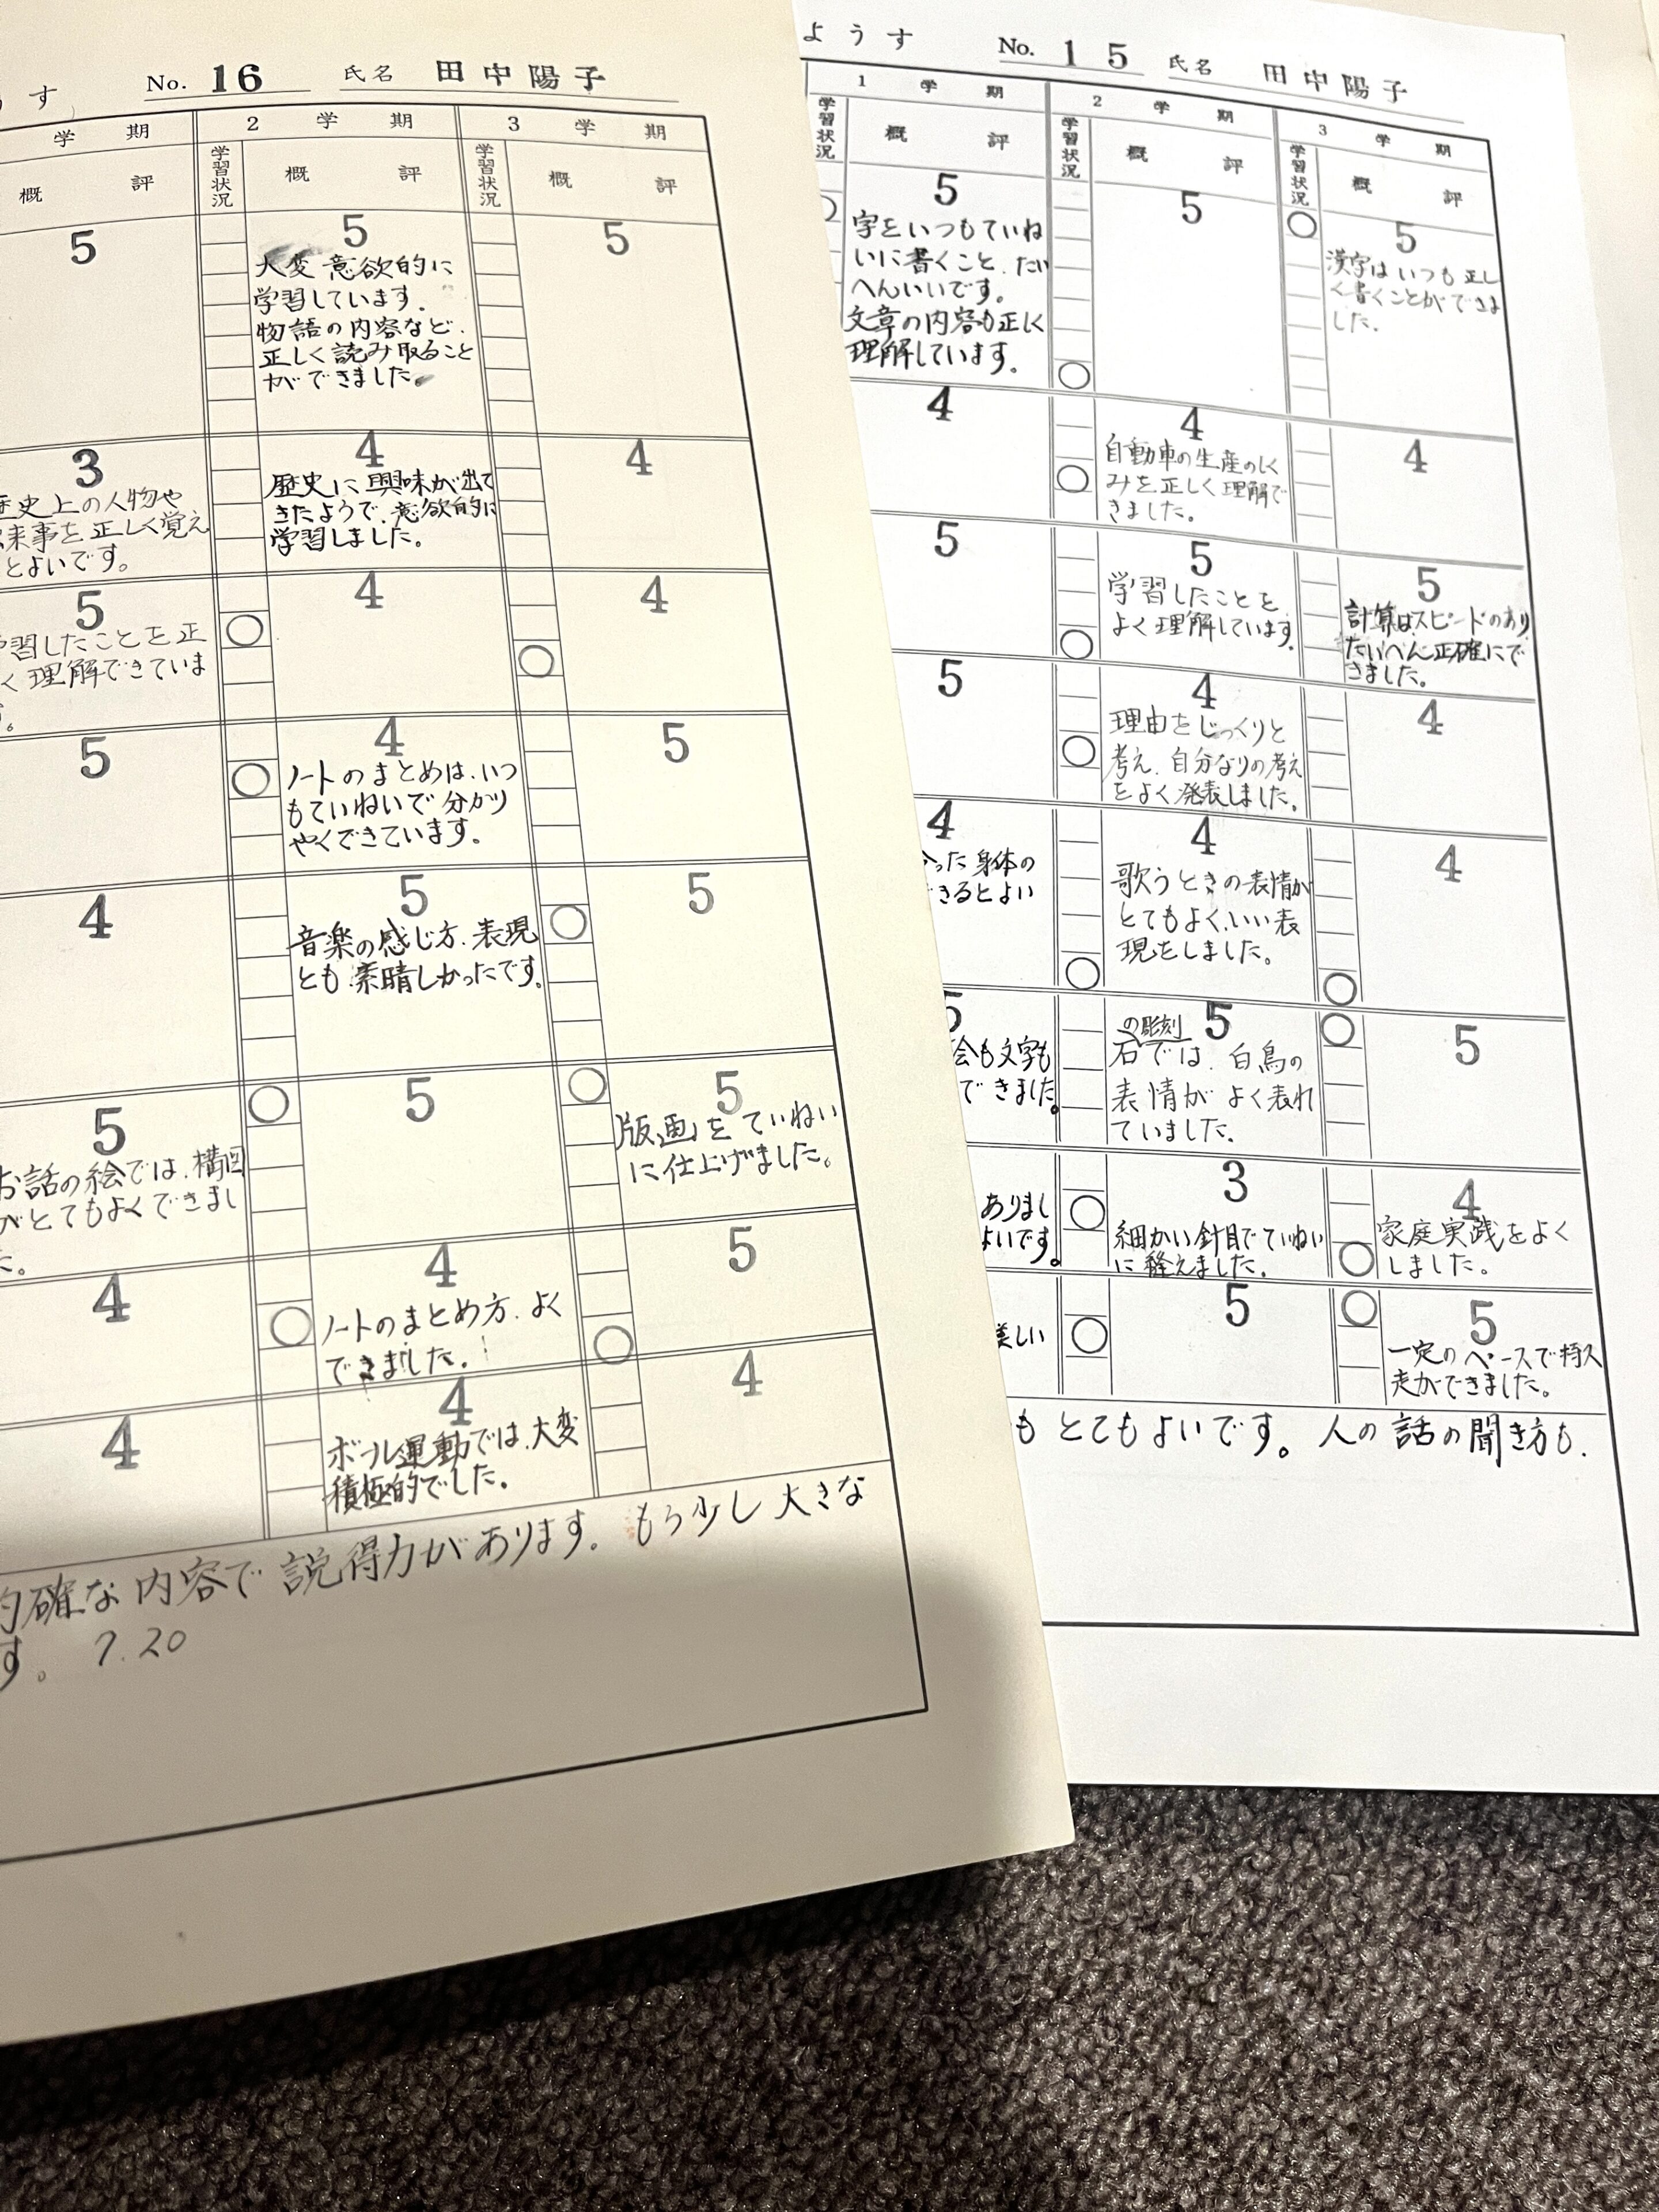 うす
No. 16 氏名 田中陽子
学期
2 学期
3 学期
概評
学習状況
概評
学習状況
概評
5
5
大変意欲的に
学習しています.
物語の内容など.
正しく読み取ること
ができました。
5
3
歴史上の人物や
来事を正しく覚え
とよいです。
4
歴史に興味が出て
きたようで、意欲的に
学習しました。
4
5
習したことを正
く理解できていま
す。
4
4
5
4
ノートのまとめは、いつ
もていねいで分かり
やくできています。
5
4
5
音楽の感じ方、表現
とも素晴しかったです。
5
5
お話の絵では、構図
がとてもよくできまし
た。
5
5
版画をていねい
に仕上げました。
4
4
ノートのまとめ方、よく
できました。
5
4
4
ボール運動では、大変
積極的でした。
4
的確な内容で説得力があります。もう少し大きな
す。 7.20
ようす
No. 15 氏名 田中陽子
1 学期
2 学期
3 学期
学習状況
概評
学習状況
概評
学習状況
概評
5
字をいつもていね
いに書くこと、たい
へんいいです。
文章の内容も正しく
理解しています。
5
5
漢字はいつも正し
く書くことができま
した.
4
4
自動車の生産のしく
みを正しく理解で
きました。
4
5
5
学習したことを
よく理解しています。
5
計算はスピードのあり
たいへん正確にで
きました。
5
4
理由をじっくりと
考え、自分なりの考え
をよく発表しました。
4
4
った身体の
きるとよい
4
歌うときの表情が
とてもよく、いい表
現をしました。
4
5
絵も文字も
できました。
5
の彫刻
石では、白鳥の
表情がよく表れ
ていました。
5
ありまし
よいです。
3
細かい針目でていねい
に縫えました。
4
家庭実践をよく
しました。
美しい
5
5
一定のペースで持久
走ができました。
もとてもよいです。人の話の聞き方も.